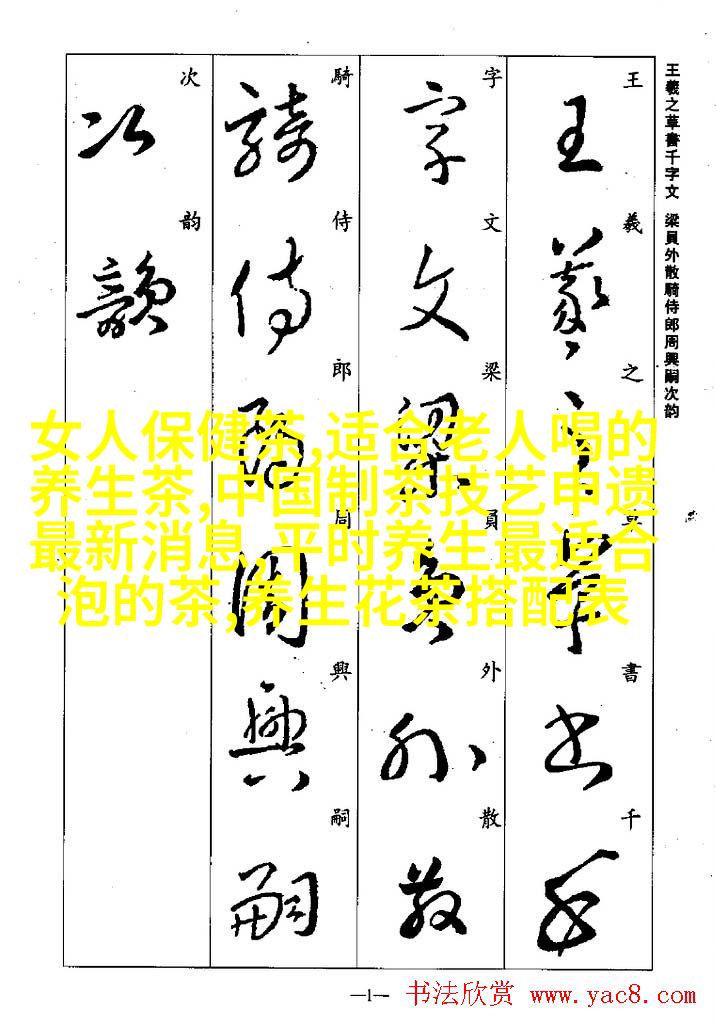 王羲之草書千字文 梁員外散騎侍郎周興嗣次韵
王羲之草書千
王羲之草書千
字文梁員外散
字文梁員外散
騎侍郎周興嗣
騎侍郎周興嗣
次韵
次韻
女人保健茶,适合老人喝的
养生茶,中国制茶技艺申遗
最新消息,平时养生最适合
泡的茶,养生花茶搭配表
—1—
书法欣赏 www.yac8.com